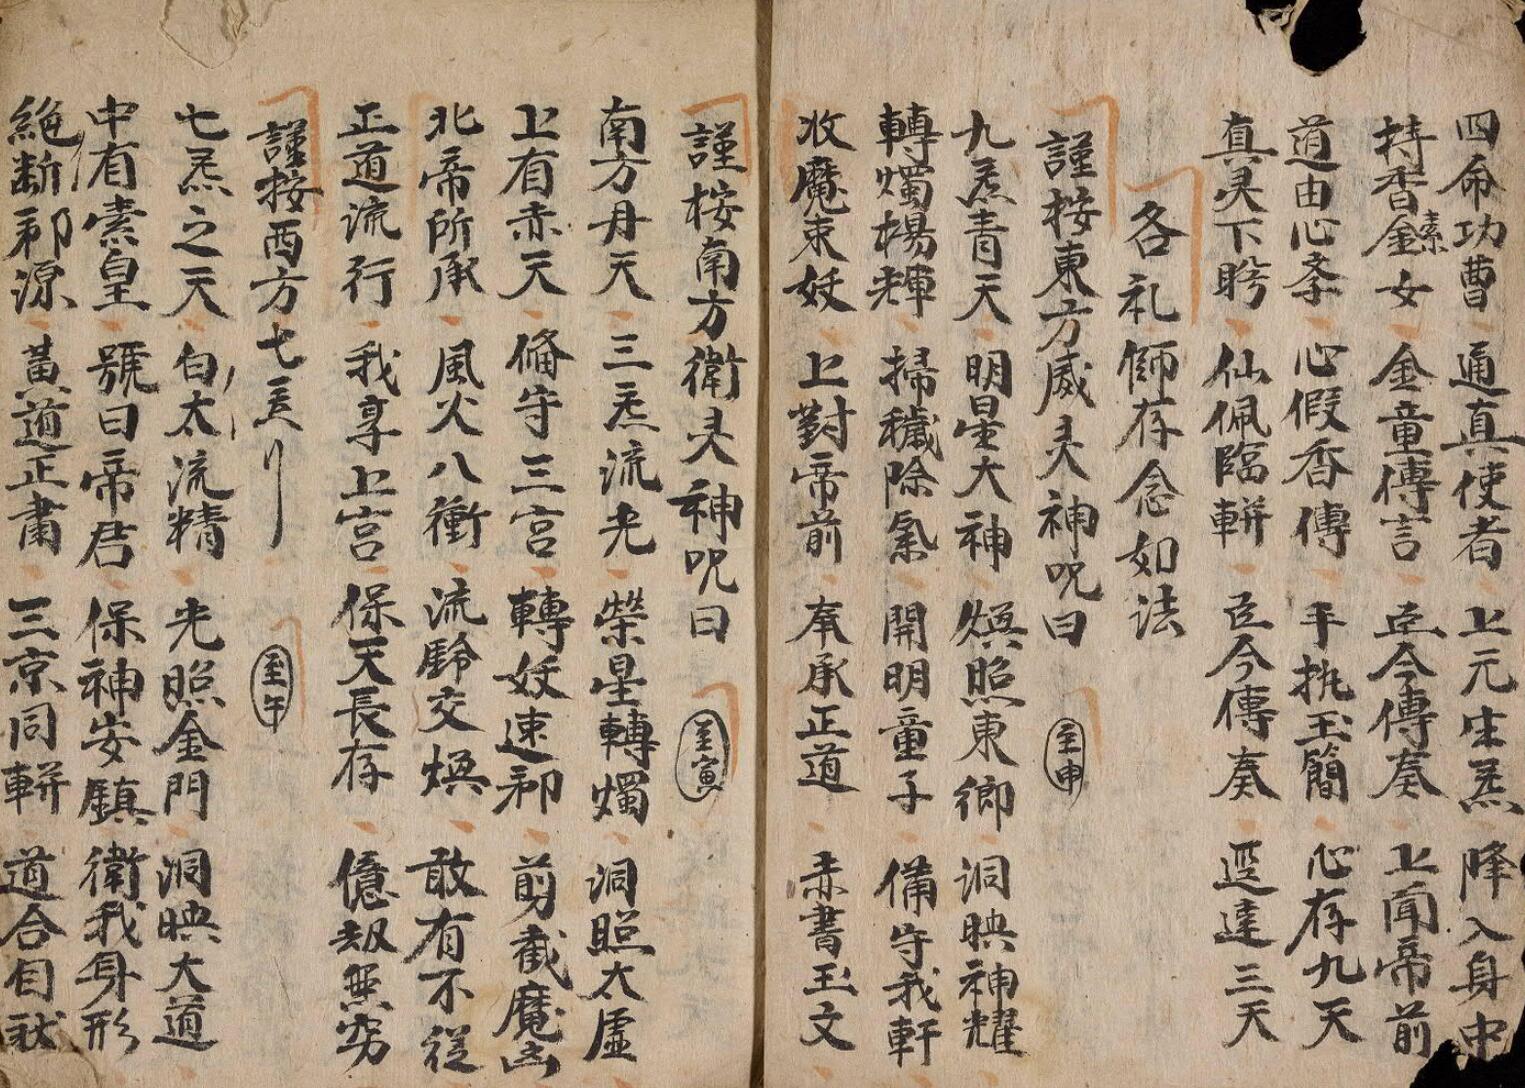 四命功曹 通真使者 上元生炁 降入身中
持香金素女 金童傳言 臣今傳奏 上聞帝前
道由心孝 心假香傳 手执玉簡 心存九天
真灵下盻 仙佩臨軿 臣今傳奏 逕達三天
各礼師存念如法
謹按東方威灵神咒曰 至申
九炁青天 明星大神 煥照東卿 洞映神耀
轉燭楊輝 掃穢除氛 開明童子 備守我軒
收魔束妖 上對帝前 奉承正道 赤書玉文
謹按南方衛灵神咒曰 至寅
南方丹天 三炁流光 榮星轉燭 洞照太虛
上有赤天 俻守三宫 轉妖速邪 剪截魔凶
北帝所承 風火八衝 流鈴交煥 敢有不從
正道流行 我享上宫 保天長存 億劫無窮
謹按西方七炁 至午
七炁之天 白太流精 光照金門 洞映大道
中有素皇 號曰帝君 保神安鎮 衛我身形
絶断邪源 黄道正肅 三京同軿 道合自狀